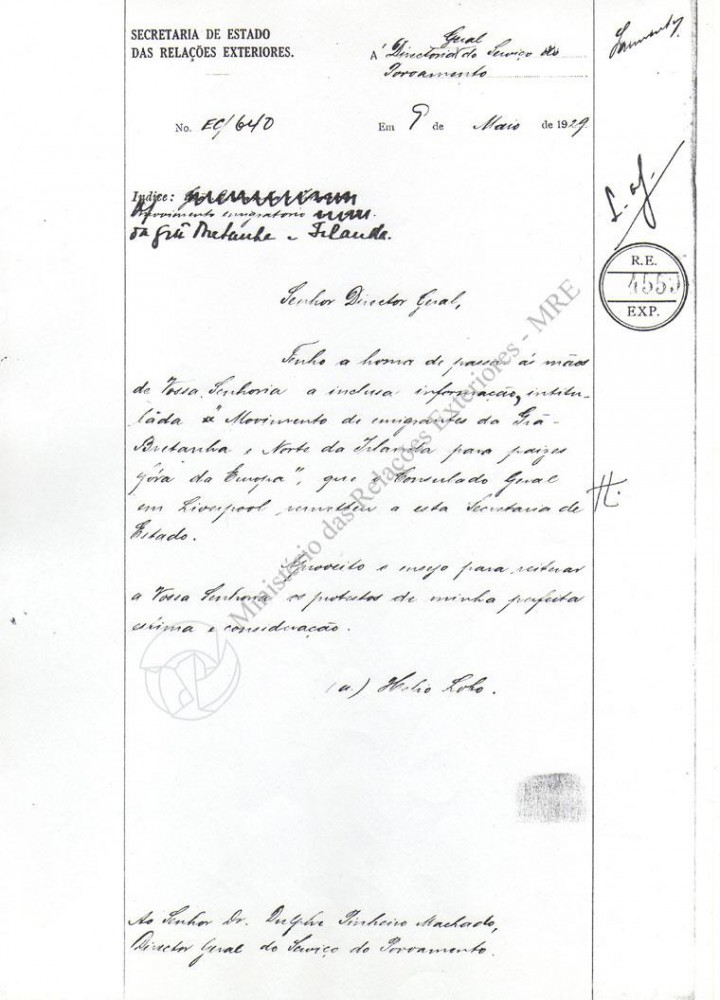 SECRETARIA DE ESTADO
DAS RELAÇÕES EXTERIORES.
Á Directoria Geral do Serviço do
Povoamento
No. EC/640
Em 9 de Maio de 1929
Indice:
Movimento emigratorio
da Grã Bretanha e Irlanda.
R.E.
EXP.
Senhor Director Geral,
Tenho a honra de passar ás mãos
de Vossa Senhoria a inclusa informação, intitu-
láda "Movimento de emigrantes da Grã-
Bretanha e Norte da Irlanda para paizes
fóra da Europa", que o Consulado Geral
em Liverpool remetteu a esta Secretaria de
Estado.
Aproveito o ensejo para reiterar
a Vossa Senhoria os protestos de minha perfeita
estima e consideração.
(a.) Helio Lobo.
Ao Senhor Dr. Dulphe Pinheiro Machado,
Director Geral do Serviço do Povoamento.
Ministério das Relações Exteriores - MRE